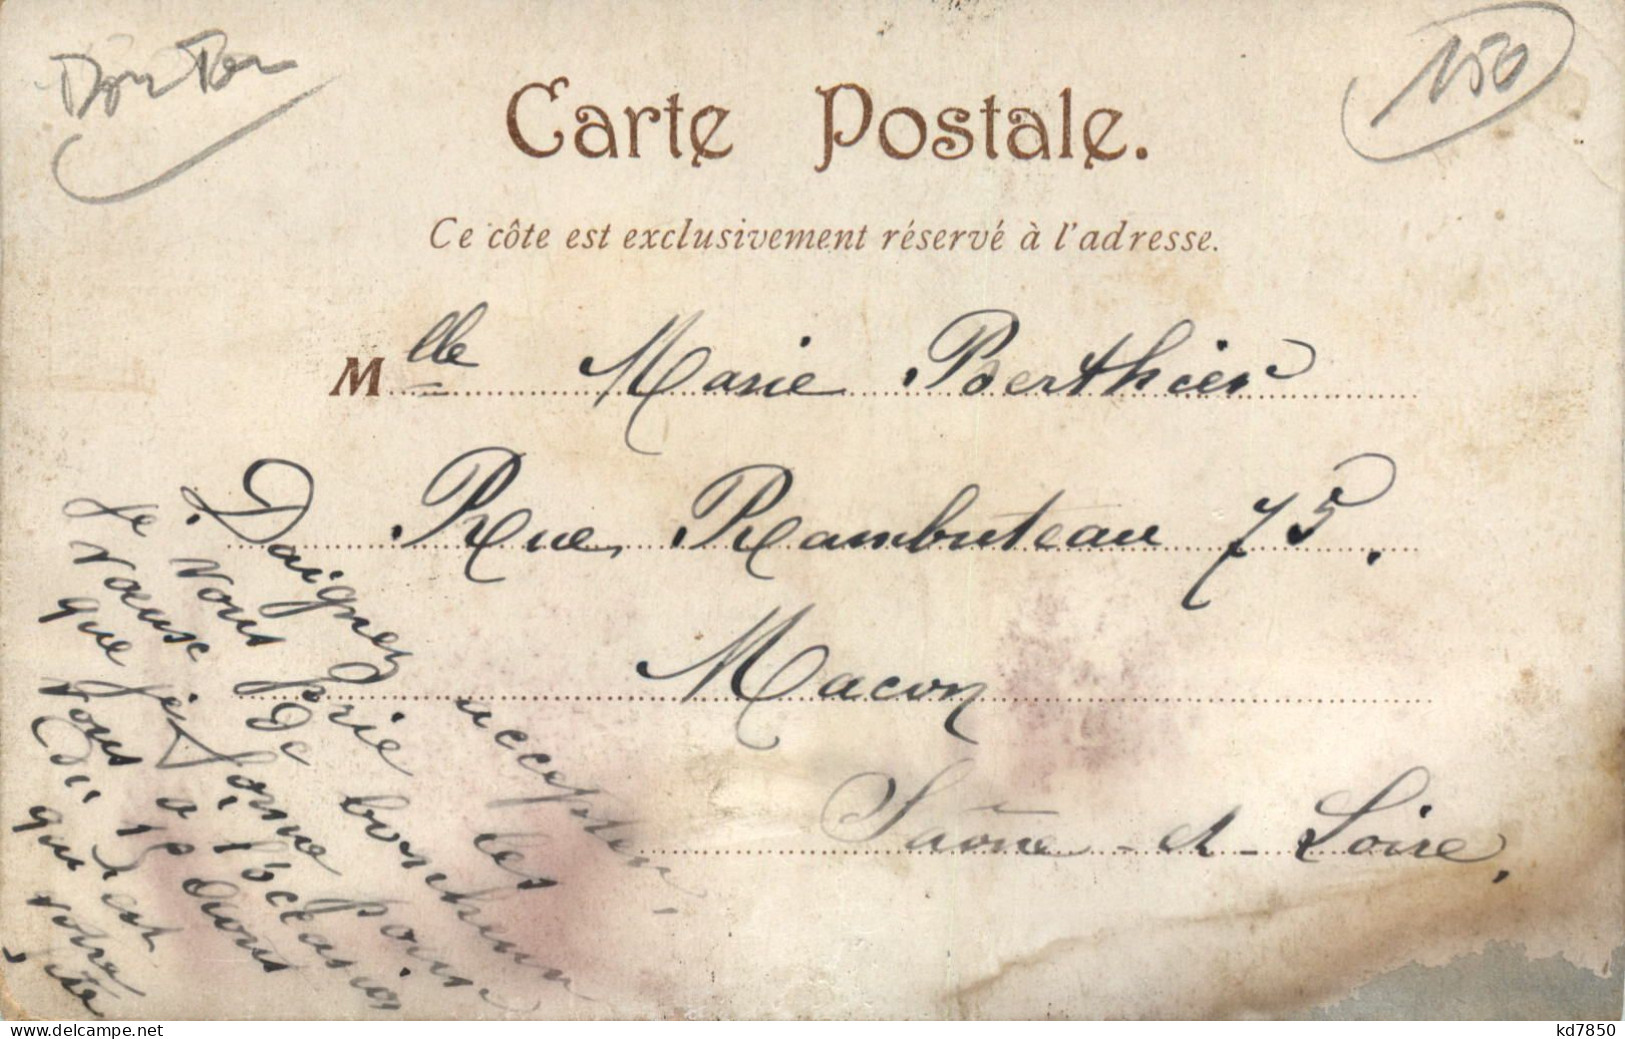 150
Carte Postale.
Ce côte est exclusivement réservé à l'adresse.
Mlle Marie Berthier
Rue Rambuteau 75.
Macon
Saône-et-Loire,
Daignez accepter,
je vous prie les
vœux de bonheur
que je forme pour
vous à l'occasion
du 15 Août
qui est
votre
fête
delcampe.net
kd7850